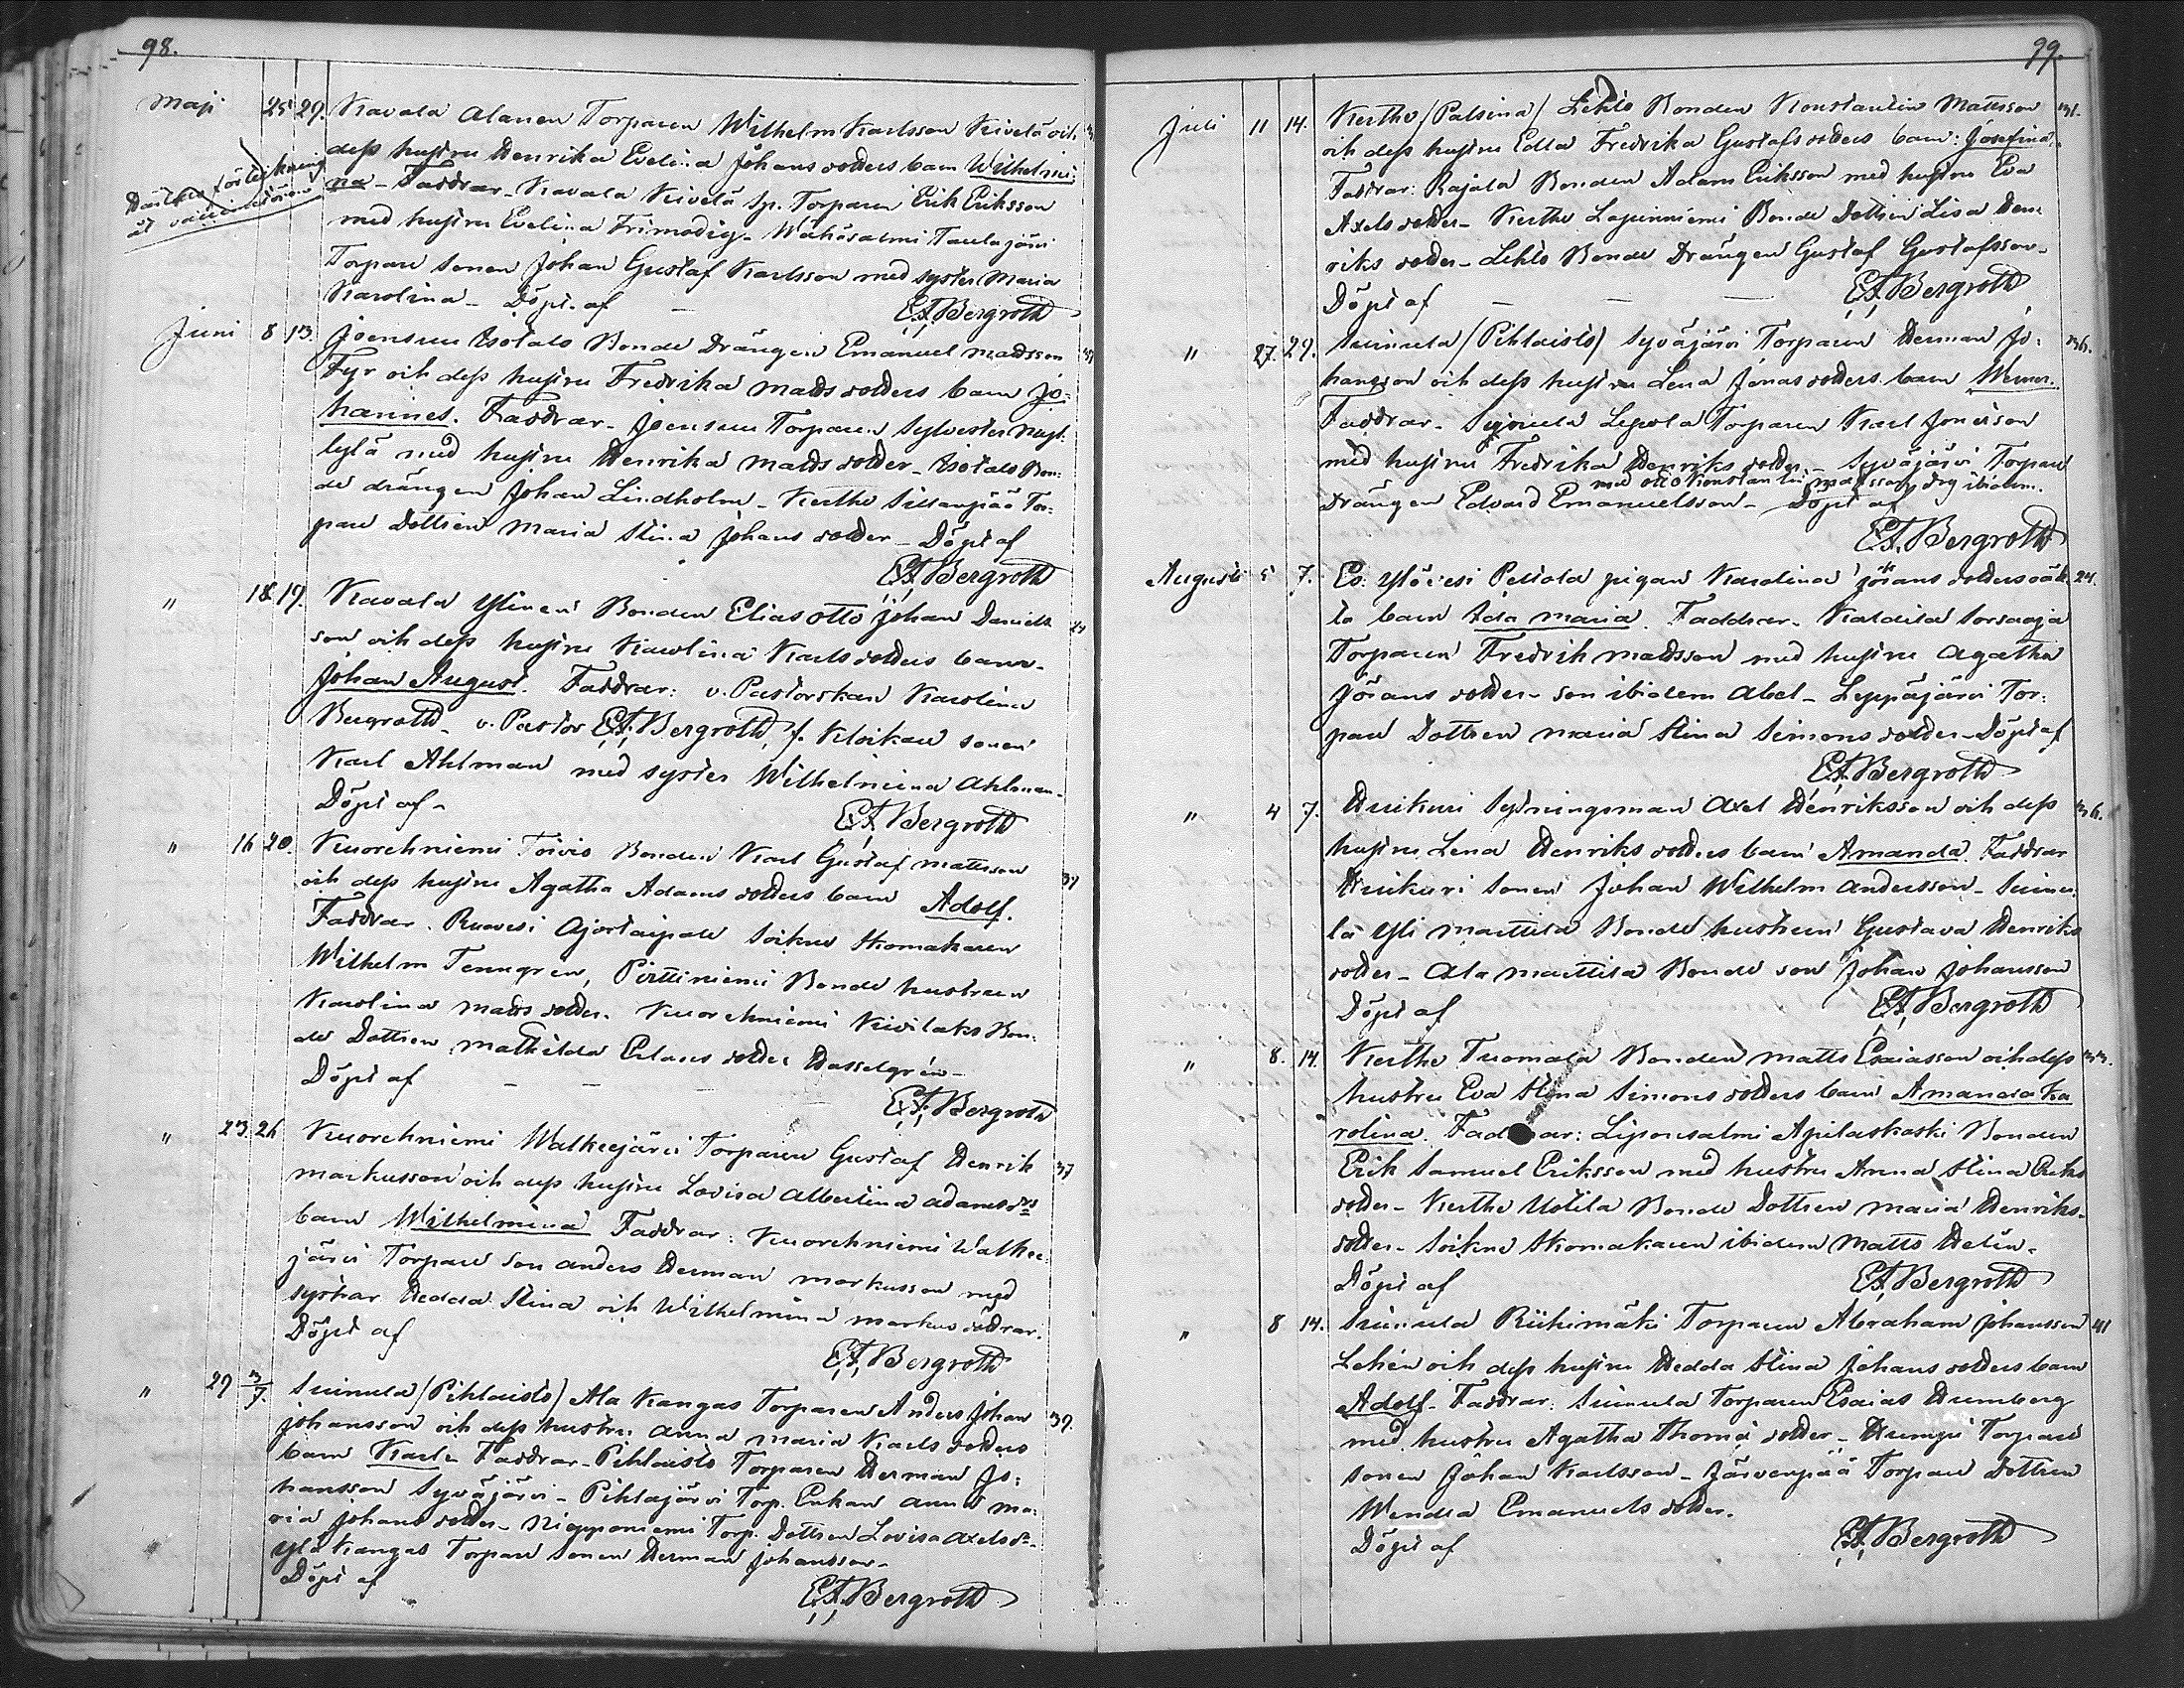 98.
Maji 25 29. Kavala Alanen Torparen Wilhelm Karlsson Kivelä och
dess hustru Henrika Evelina Johansdotters barn Wilhelmi-
na - Faddrar - Kavala Kivelä Sp. Torparen Erik Eriksson
med hustru Evelina Frimodig - Wähäsalmi Taulajärvi
Torpare sonen Johan Gustaf Karlsson med syster Maria
Karolina - Döpt af - E.F. Bergroth
Juni 8 13. Joensuu Isotalo Bonde Drängen Emanuel Madsson
Fyr och dess hustru Fredrika Madsdotters barn Jo-
hannes. Faddrar - Joensuu Torparen Sylvester
med hustru Henrika Madsdotter - Isotalo Bon-
de drängen Johan Lindholm - Kerttu Sillanpää Tor-
pare Dottren Maria Stina Johansdotter - Döpt af
E.F. Bergroth
" 18 19. Kavala Ylinen Bonden Elias Otto Johan Daniels
son och dess hustru Karolina Karlsdotters barn
Johan August. Faddrar: v. Pastorskan Karolina
Bergroth - v. Pastor E.F. Bergroth, f. Klockare sonen
Karl Ahlman med syster Wilhelmina Ahlman
Döpt af - E.F. Bergroth
" 16 20. Kuorehniemi Toivio Bonden Karl Gustaf Mattsson 37
och dess hustru Agatha Adamsdotters barn Adolf.
Faddrar. Ruovesi Ajostaipale Sockne Skomakaren
Wilhelm Tenngren, Pirttiniemi Bonde hustrun
Karolina Madsdotter. Kuorehniemi Kivilaks Bon-
de Dottren Mathilda Erlansdotter Hasselgrén -
Döpt af - - - E.F. Bergroth
" 23 26 Kuorehniemi Walkeejärvi Torparen Gustaf Henrik 37
Markusson och dess hustru Lovisa Albertina Adamsdr
barn Wilhelmina Faddrar: Kuorehniemi Walkee-
järvi Torpare son Anders Herman Markusson med
systrar Hedda Stina och Wilhelmina Markusdöttrar.
Döpt af E.F. Bergroth
" 29 3/7. Suinula (Pihlaisto) Ala Kangas Torparen Anders Johan 39.
Johansson och dess hustru Anna Maria Karlsdotters
barn Karl. Faddrar - Pihlaisto Torparen Herman Jo-
hansson Syväjärvi - Pihlajärvi Torp. Enkan Anna Ma-
ria Johansdotter - Niopponiemi Torp. Dottren Lovisa Axelsdr -
Ylä Kangas Torpare sonen Herman Johansson -
Döpt af E.F. Bergroth
99.
Juli 11 14. Kertho (Palsina) Lehto Bonden Konstantin Mattsson 31.
och dess hustru Edla Fredrika Gustafsdotters barn: Josefina.
Faddrar: Rajala Bonden Adam Eriksson med hustru Eva
Axelsdotter - Kertho Lapinniemi Bonde Dottren Lisa Hen-
riksdotter - Lehto Bonde Drängen Gustaf Gustafsson -
Döpt af - - - E.F. Bergroth
" 27. 29. Suinula (Pihlaisto) Syväjärvi Torparen Herman Jo- 36.
hansson och dess hustru Lena Jonasdotters barn Werner.
Faddrar - Suinula Lepola Torparen Karl Jonasson
med hustru Fredrika Henriksdotter - Syväjärvi Torpare
med Otto Konstantin Mattsson, drg ibidem.
Drängen Edvard Emanuelsson - Döpt af
E.F. Bergroth
Augusti 5 7. Eo. Ylövesi Peltola pigan Karolina Göransdotters oäk- 24.
ta barn Ida Maria. Faddrar - Kaldila Sorsaoja
Torparen Fredrik Madsson med hustru Agatha
Göransdotter - son ibidem Abel - Leppäjärvi Tor-
pare Dottren Maria Stina Simonsdotter - Döpt af
E.F. Bergroth
" 4 7. Huikuri Sytningsman Axel Henriksson och dess 36.
hustru Lena Henriksdotters barn Amanda. Faddrar
Huikuri sonen Johan Wilhelm Andersson - Suinu-
la Yli Marttila Bonde hustrun Gustava Henriks
dotter - Ala Marttila Bonde son Johan Johansson
Döpt af E.F. Bergroth
" 8. 14. Kertho Tuomala Bonden Matts Esaiasson och dess 33.
hustru Eva Stina Simonsdotters barn Amanda Ka
rolina. Faddrar: Liponsalmi Apilaskoski Bonden
Erik Samuel Eriksson med hustru Anna Stina Eriks
dotter - Kertho Uotila Bonde Dottren Maria Henriks-
dotter - Sockne Skomakaren ibidem Matts Helén -
Döpt af E.F. Bergroth
" 8 14. Suinula Riihimäki Torparen Abraham Johansson 41
Lehén och dess hustru Hedda Stina Johansdotters barn
Adolf - Faddrar: Suinula Torparen Esaias Humberg
med hustru Agatha Thomædotter - Humpi Torpare
sonen Johan Karlsson - Järvenpää Torpare Dottren
Wendla Emanuelsdotter.
Döpt af E.F. Bergroth